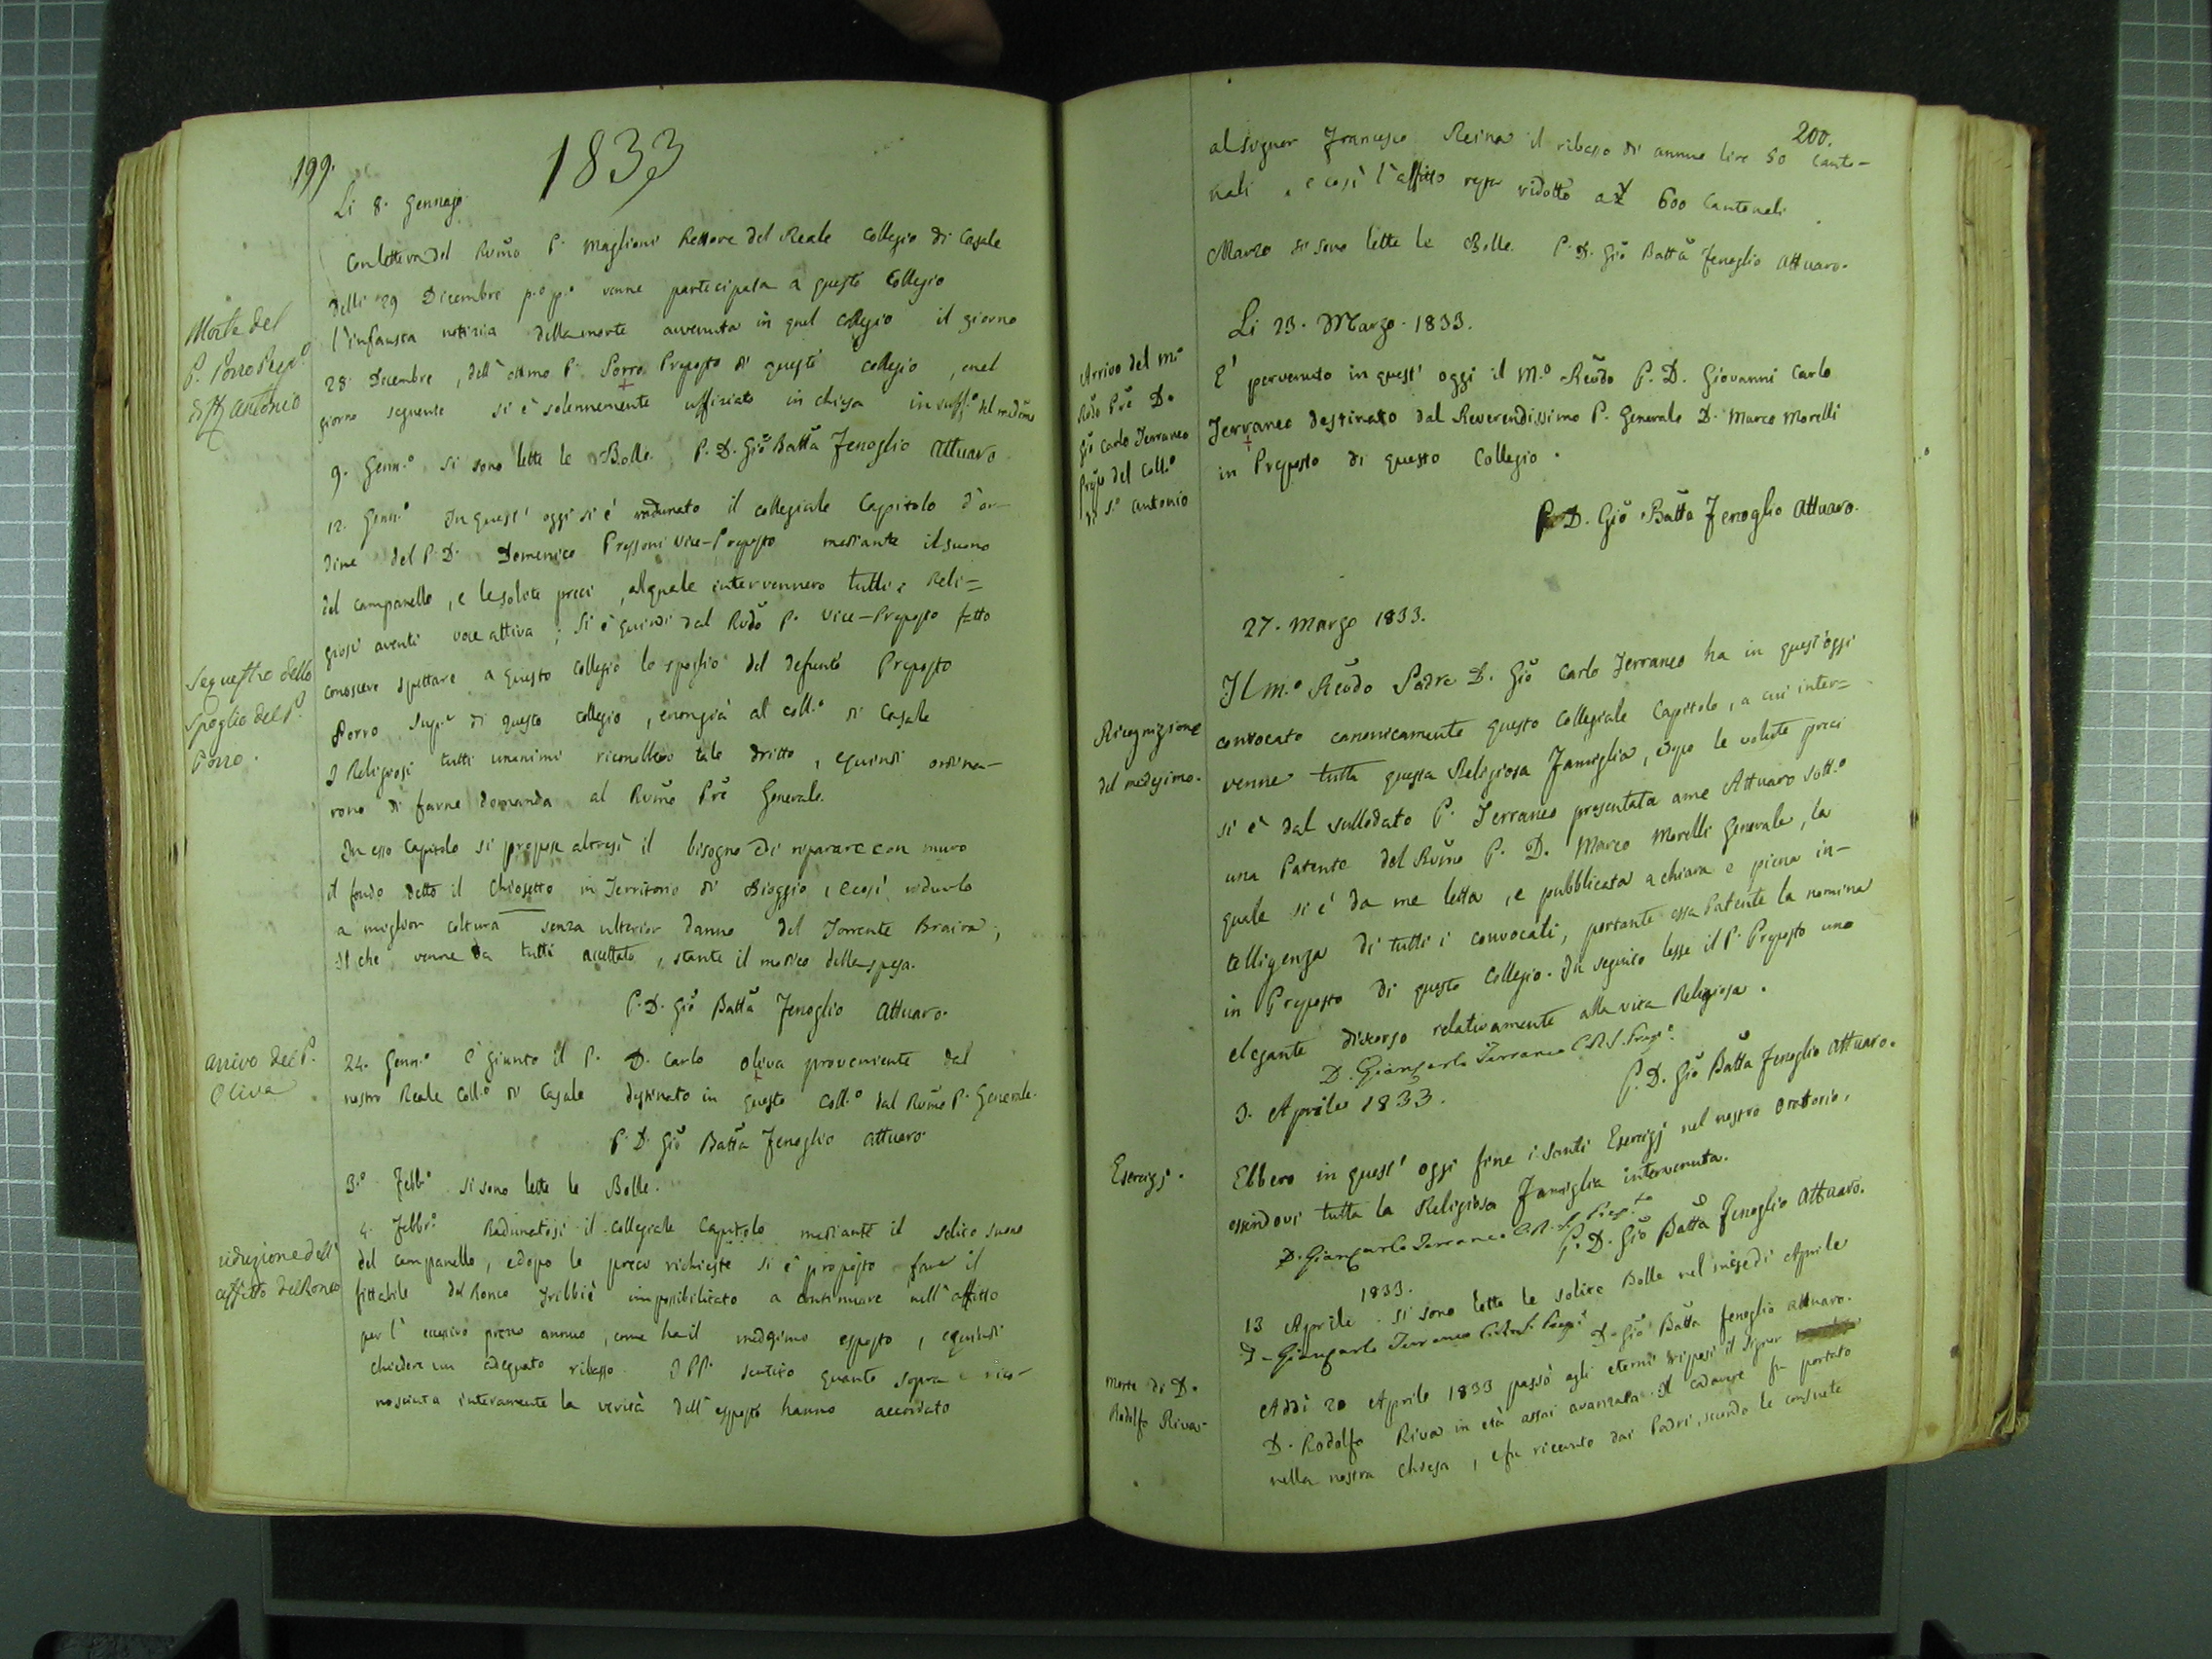 199.
1833
Li 8. Gennajo
Con lettera del Rumo P. Maglioni Rettore del Reale Collegio di Casale
delli 29 Dicembre p.o p.o venne partecipata a questo Collegio
l'infausta notizia della morte avvenuta in quel collegio il giorno
28 Dicembre, dell'ottimo P. Porro Preposto di questo collegio, e nel
giorno seguente si è solennemente uffiziato in chiesa in suff.o del medemo
Morte del
P. Porro Prep.o
di S. Antonio
9. Genn.o si sono lette le Bolle. P. D. Gio Batta Fenoglio Attuaro
12. Genn.o In quest'oggi si è radunato il collegiale Capitolo d'or-
dine del P. D. Domenico Pressoni Vice-Preposto mediante il suono
del campanello, e le solite preci, al quale intervennero tutti i Reli=
giosi aventi voce attiva; Si è quindi dal Rudo P. Vice-Preposto fatto
conoscere spettare a questo collegio lo spoglio del defunto Preposto
Porro Sup.e di questo collegio, e non già al coll.o di Casale
I Religiosi tutti unanimi riconobbero tale dritto, e quindi ordina-
rono di farne domanda al Rumo Pre Generale.
Sequestro dello
Spoglio del P.
Porro.
In esso Capitolo si propose altresì il bisogno di riparare con muro
il fondo detto il Chiosetto in Territorio di Bioggio, e così ridurlo
a miglior coltura senza ulterior danno del Torrente Braira;
Il che venne da tutti accettato, stante il modico della spesa.
P. D. Gio Batta Fenoglio Attuaro.
Arrivo del P.
Oliva
24. Genn.o È giunto il P. D. Carlo Oliva proveniente dal
nostro Reale Coll.o di Casale destinato in questo Coll.o dal Rumo P. Generale.
P. D. Gio Batta Fenoglio Attuaro
3.o Febb.o si sono lette le Bolle.
4. Febbr.o Radunatosi il collegiale Capitolo mediante il solito suono
del campanello, e dopo le preci richieste si è proposto fare il
fittabile del Ronco Tribbiè impossibilitato a continuare nell'affitto
per l'eccessivo prezzo annuo, come ha il medesimo esposto, e quindi
chiedere un adeguato ribasso. I PP. sentito quanto sopra e rico-
nosciuta interamente la verità dell'esposto hanno accordato
riduzione dell'
affitto del Ronco
200.
al Signor Francesco Reina il ribasso di annue lire 50 Canto-
nali, e così l'affitto resta ridotto a £ 600 Cantonali.
Marzo si sono lette le Bolle. P. D. Gio Batta Fenoglio Attuaro.
Li 23. Marzo. 1833.
È pervenuto in quest'oggi il M.o Revdo P. D. Giovanni Carlo
Terraneo destinato dal Reverendissimo P. Generale D. Marco Morelli
in Preposto di questo Collegio.
P. D. Gio Batta Fenoglio Attuaro.
Arrivo del m.o
Rdo Pre D.
Gio Carlo Terraneo
Prepo del Coll.o
di S.o Antonio
27. Marzo 1833.
Il M.o Revdo Padre D. Gio Carlo Terraneo ha in quest'oggi
convocato canonicamente questo Collegiale Capitolo, a cui inter=
venne tutta questa Religiosa Famiglia, dopo le volute preci
si è dal sullodato P. Terraneo presentata a me Attuaro sott.o
una Patente del Rumo P. D. Marco Morelli Generale, la
quale si è da me letta, e pubblicata a chiara e piena in-
telligenza di tutti i convocati, portante essa Patente la nomina
in Preposto di questo Collegio. In seguito lesse il P. Preposto uno
elegante discorso relativamente alla vita Religiosa.
D. Giancarlo Terraneo C.R.S. Prep.o
P. D. Gio Batta Fenoglio Attuaro.
Ricognizione
del medesimo.
3. Aprile 1833.
Ebbero in quest'oggi fine i Santi Esercizj nel nostro Oratorio,
essendovi tutta la Religiosa Famiglia intervenuta.
D. Giancarlo Terraneo C.R.S. Prep.to
P. D. Gio Batta Fenoglio Attuaro.
Esercizj.
1833.
13 Aprile. si sono lette le solite Bolle nel mese di Aprile
D. Giancarlo Terraneo C.R.S. Prep.o
D. Gio Batta Fenoglio Attuaro.
Addì 20 Aprile 1833 passò agli eterni riposi il Signor
D. Rodolfo Riva in età assai avanzata. Il cadavere fu portato
nella nostra Chiesa, e fu ricevuto dai Padri, secondo le consuete
Morte di D.
Rodolfo Riva